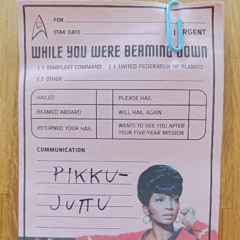 FOR
STAR DATE URGENT
WHILE YOU WERE BEAMING DOWN
[ ] STARFLEET COMMAND [ ] UNITED FEDERATION OF PLANETS
[ ] OTHER
HAILED PLEASE HAIL
BEAMED ABOARD WILL HAIL AGAIN
RETURNED YOUR HAIL WANTS TO SEE YOU AFTER YOUR FIVE-YEAR MISSION
COMMUNICATION
PIKKU-
JUTTU